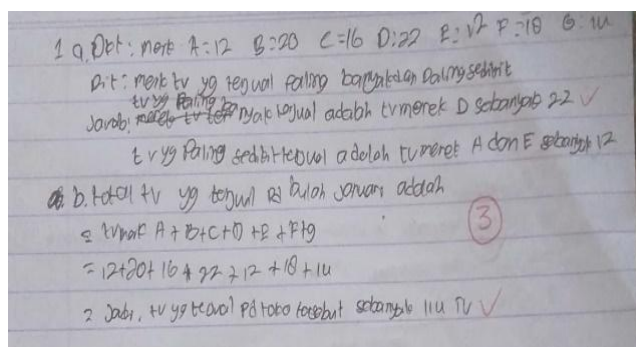 1 a. Dkt : merk A = 12 B = 20 C = 16 D = 22 E = 12 F = 18 G = 14
Dit : merk tv yg terjual paling banyak dan paling sedikit
tv yg Paling
Jawab : banyak terjual adalah tv merek D sebanyak 22 ✓
tv yg Paling sedikit terjual adalah tv merek A dan E sebanyak 12
b. total tv yg terjual pd bulan januari adalah
= tv merk A + B + C + D + E + F + g
3
= 12 + 20 + 16 + 22 + 12 + 18 + 14
= Jadi, tv yg terjual pd toko tersebut sebanyak 114 TV ✓